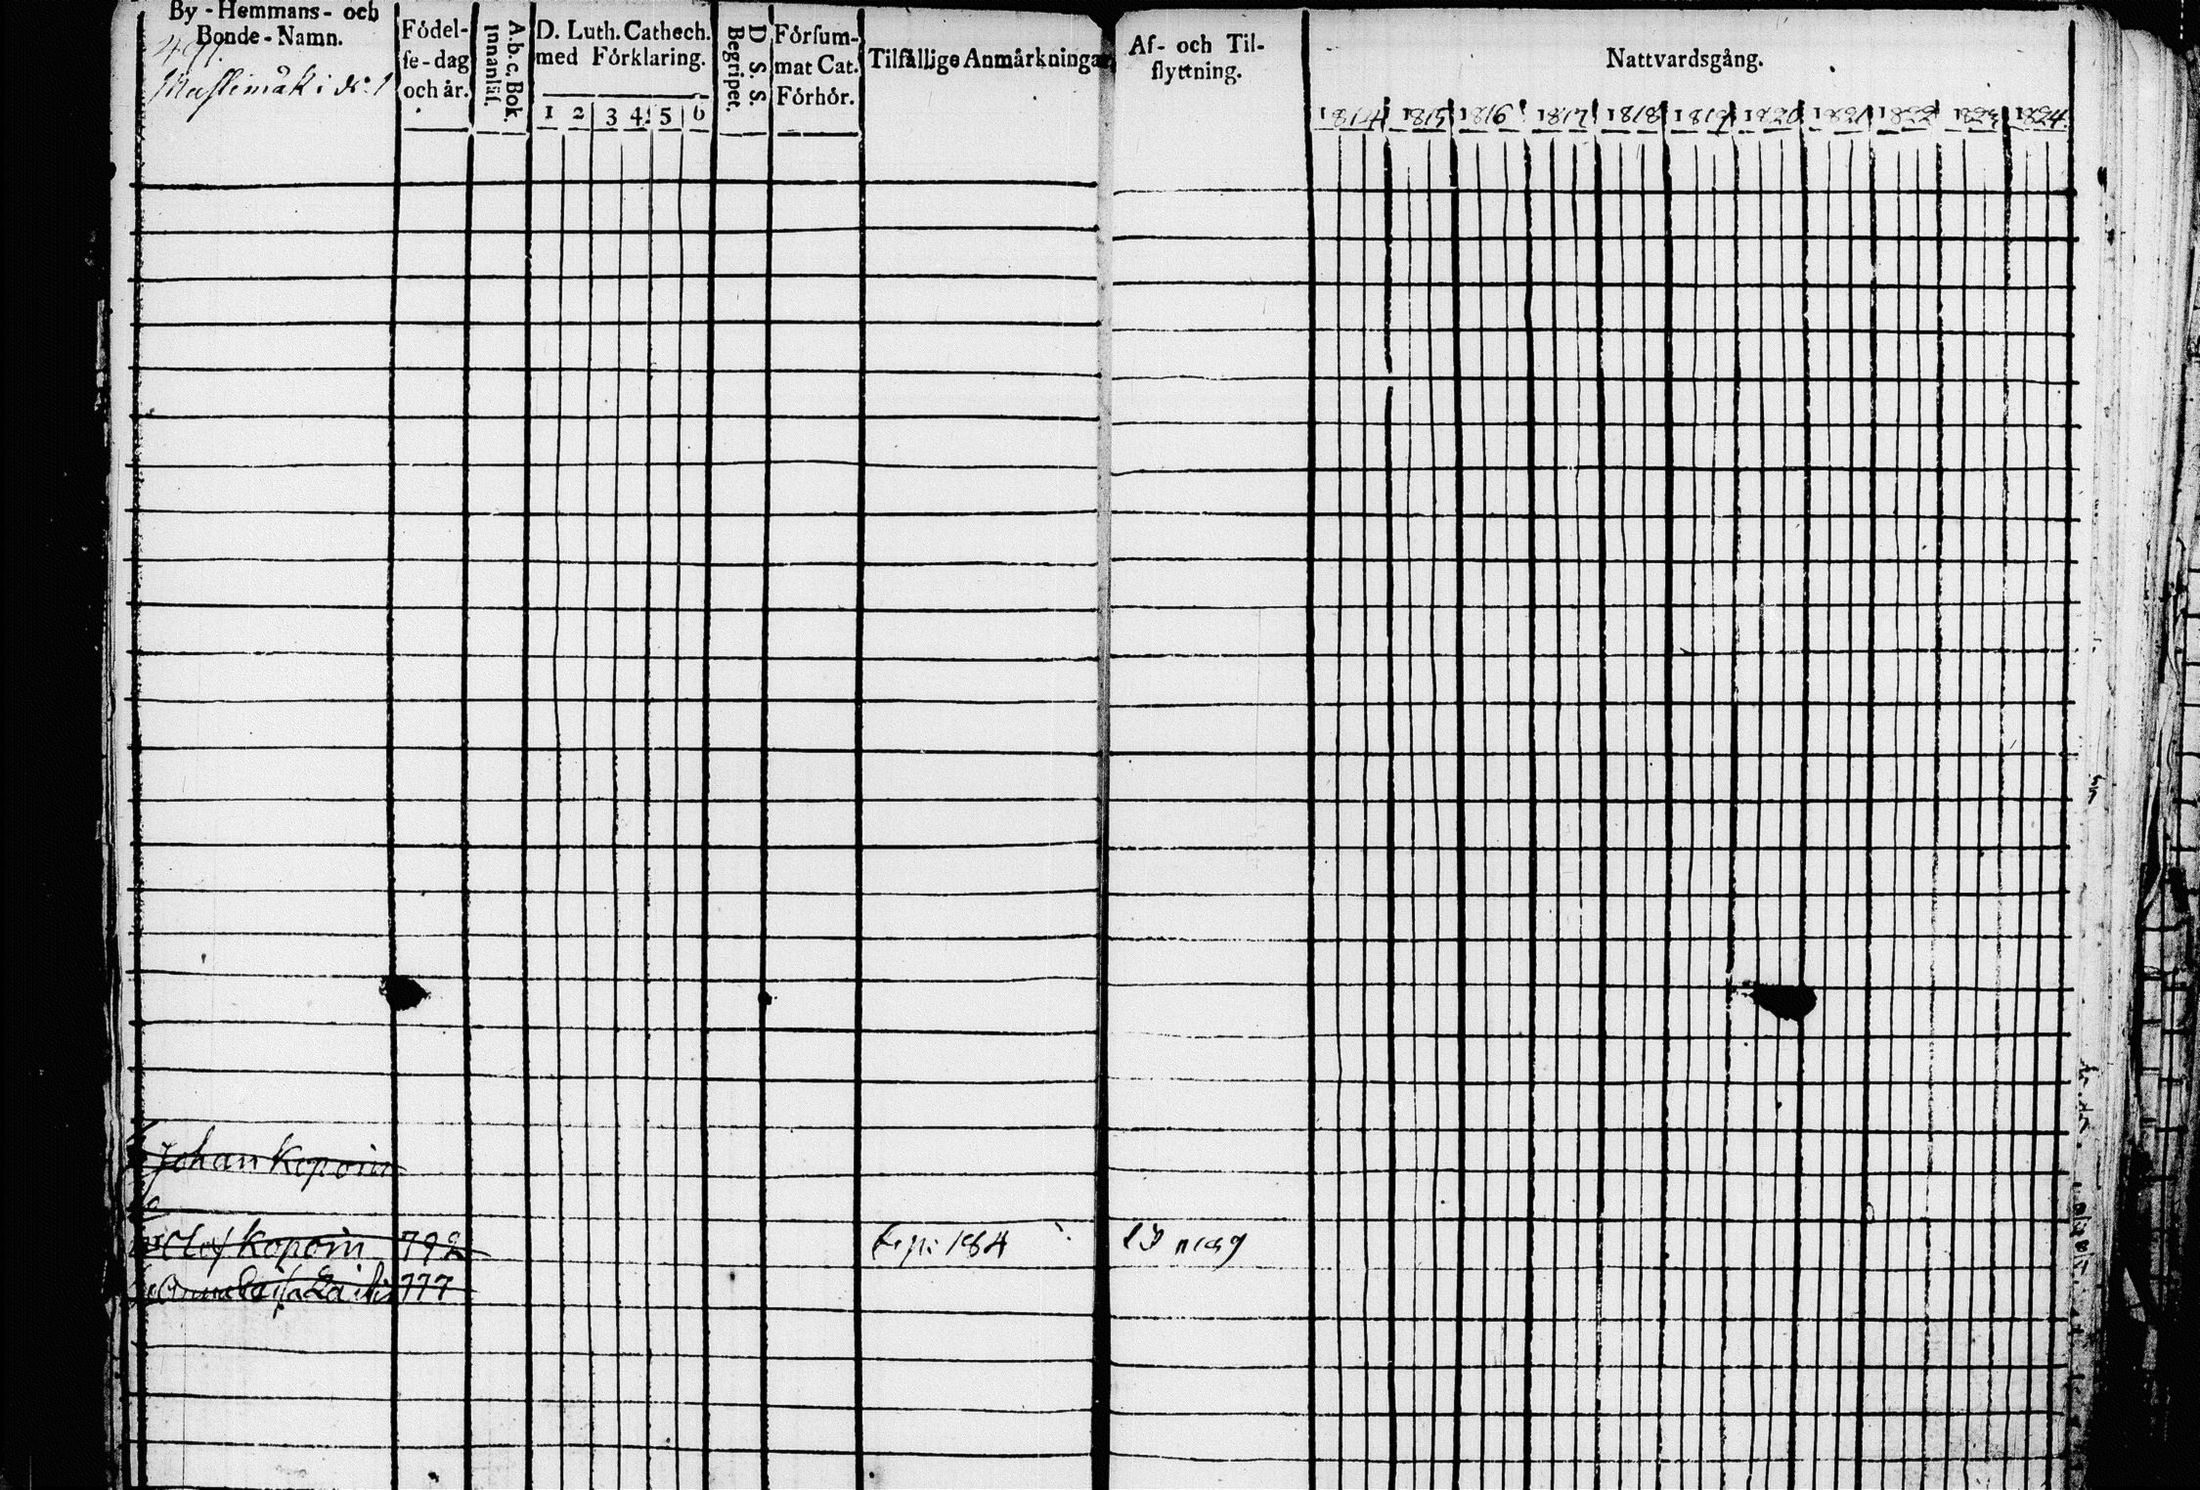 By - Hemmans- och
Bonde - Namn.
497.
Mustimäki № 1
Födel-
se - dag
och år.
A. b. c. Bok.
Innanläs.
D. Luth. Cathech.
med Förklaring.
1 2 3 4 5 6
D. S. S.
Begripet.
Försum-
mat Cat.
Förhör.
Tilfällige Anmärkningar
Af- och Til-
flyttning.
Nattvardsgång.
1814 1815 1816 1817 1818 1819 1820 1821 1822 1823 1824.
Johan Kopoin
Olof Kopoin 792
777